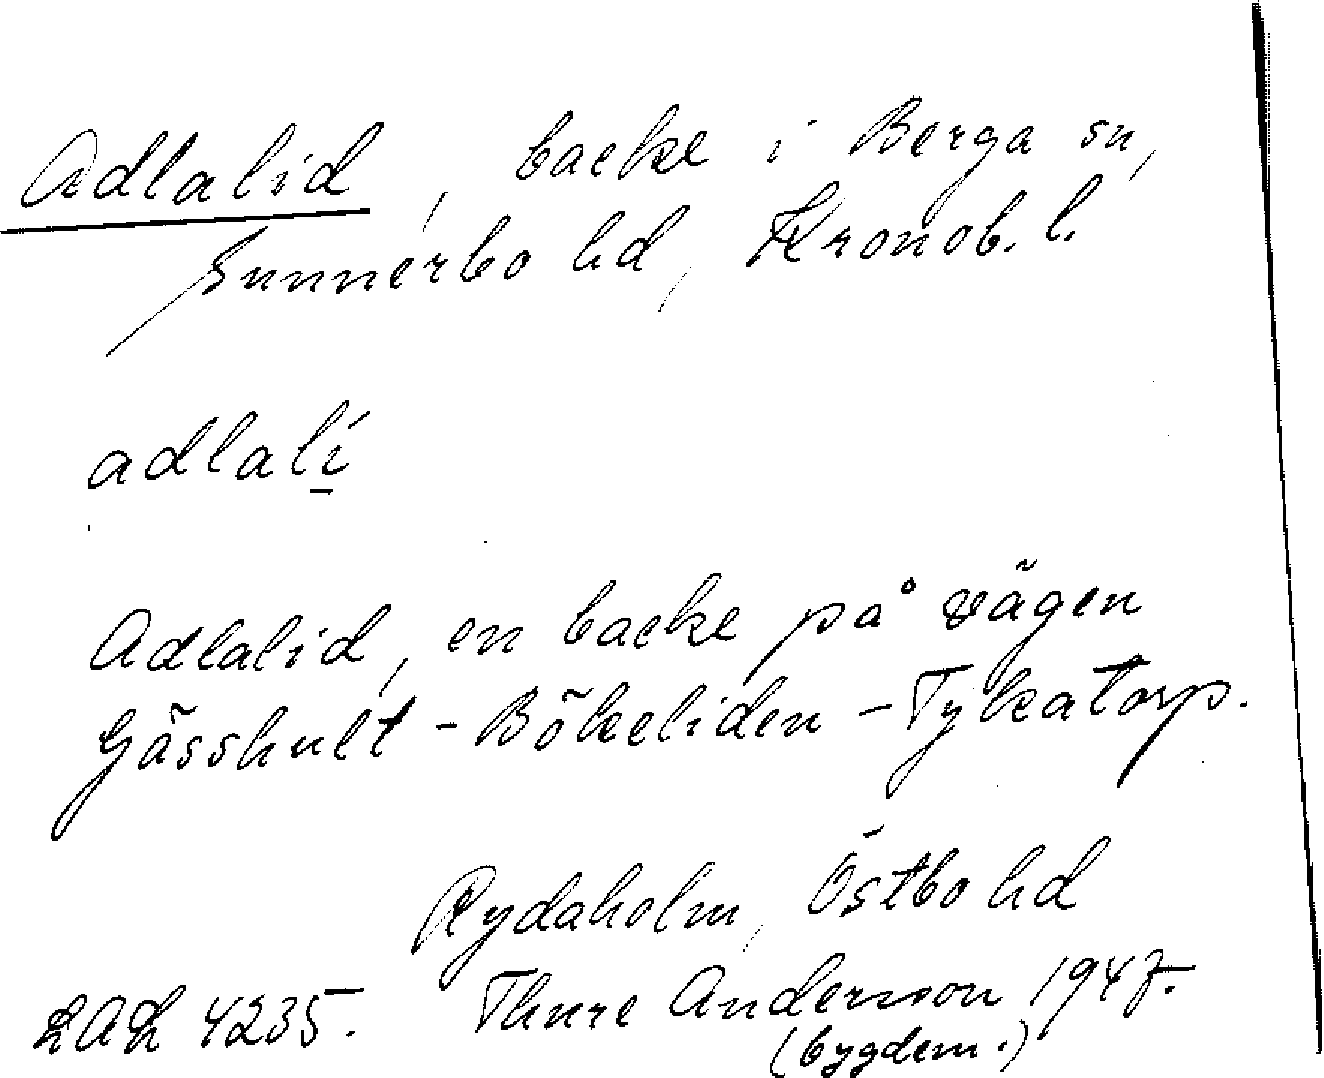 Adlalid, backe i Berga sn,
Sunnerbo hd, Kronob. l.
adlalí
Adlalid, en backe på vägen
Gässhult - Bökeliden - Tykatorp.
Rydaholm, Östbo hd
LAL 4235. Thure Anderson 1947.
(bygdem.)